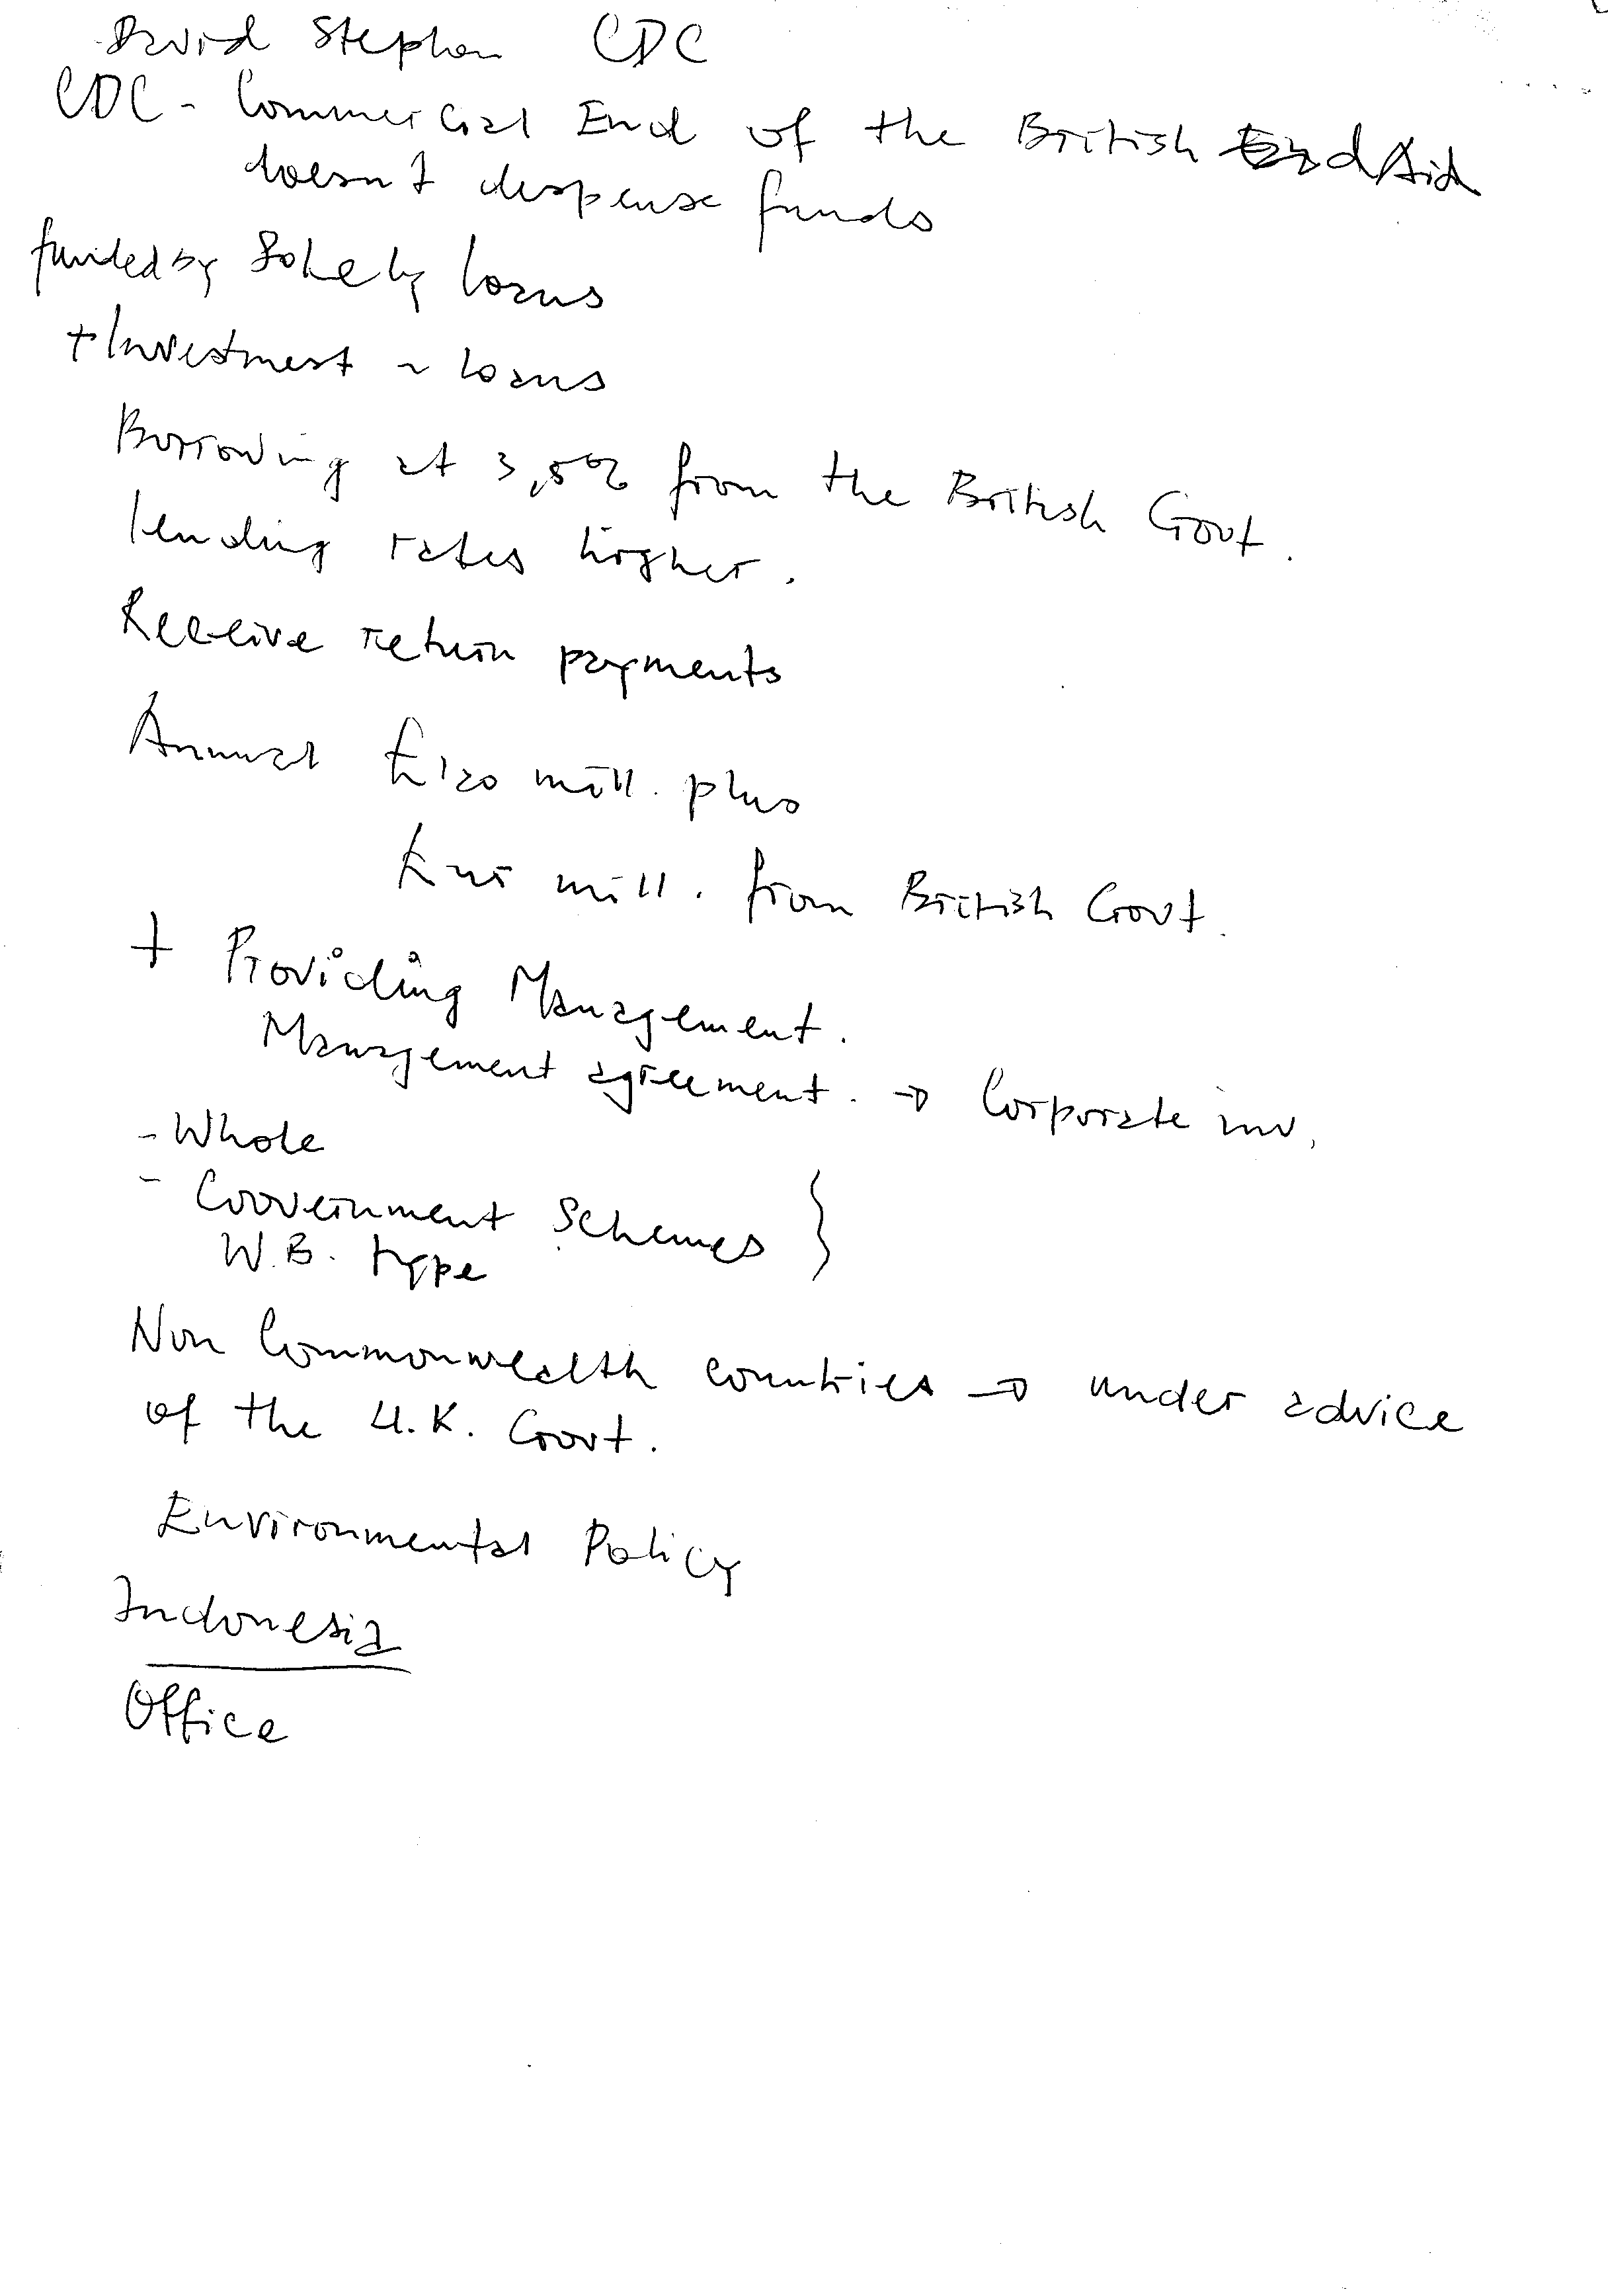 David Stephen CDC
CDC - Commercial End of the British Aid
doesn't dispense funds
funded by Solely loans
+ Investment ~ loans
Borrowing at 3,5% from the British Govt.
lending rates higher.
Receive return payments
Annual £120 mill. plus
£ mill. from British Govt.
+ Providing Management.
Management agreement. → Corporate inv.
- Whole
- Government Schemes }
W.B. type
Non Commonwealth countries → under advice
of the U.K. Govt.
Environmental Policy
Indonesia
Office